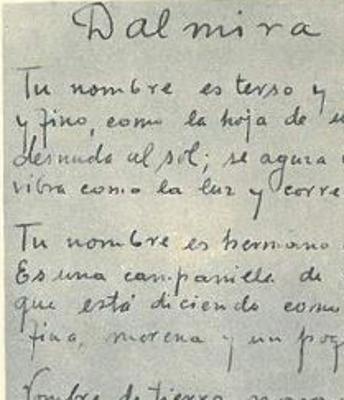 Dalmira
Tu nombre es terso y
y fino, como la hoja de
desnuda al sol; se aguza
vibra como la luz y corre
Tu nombre es hermano
Es una campanilla de
que está diciendo como
fina, morena y un
Nombre de tierra